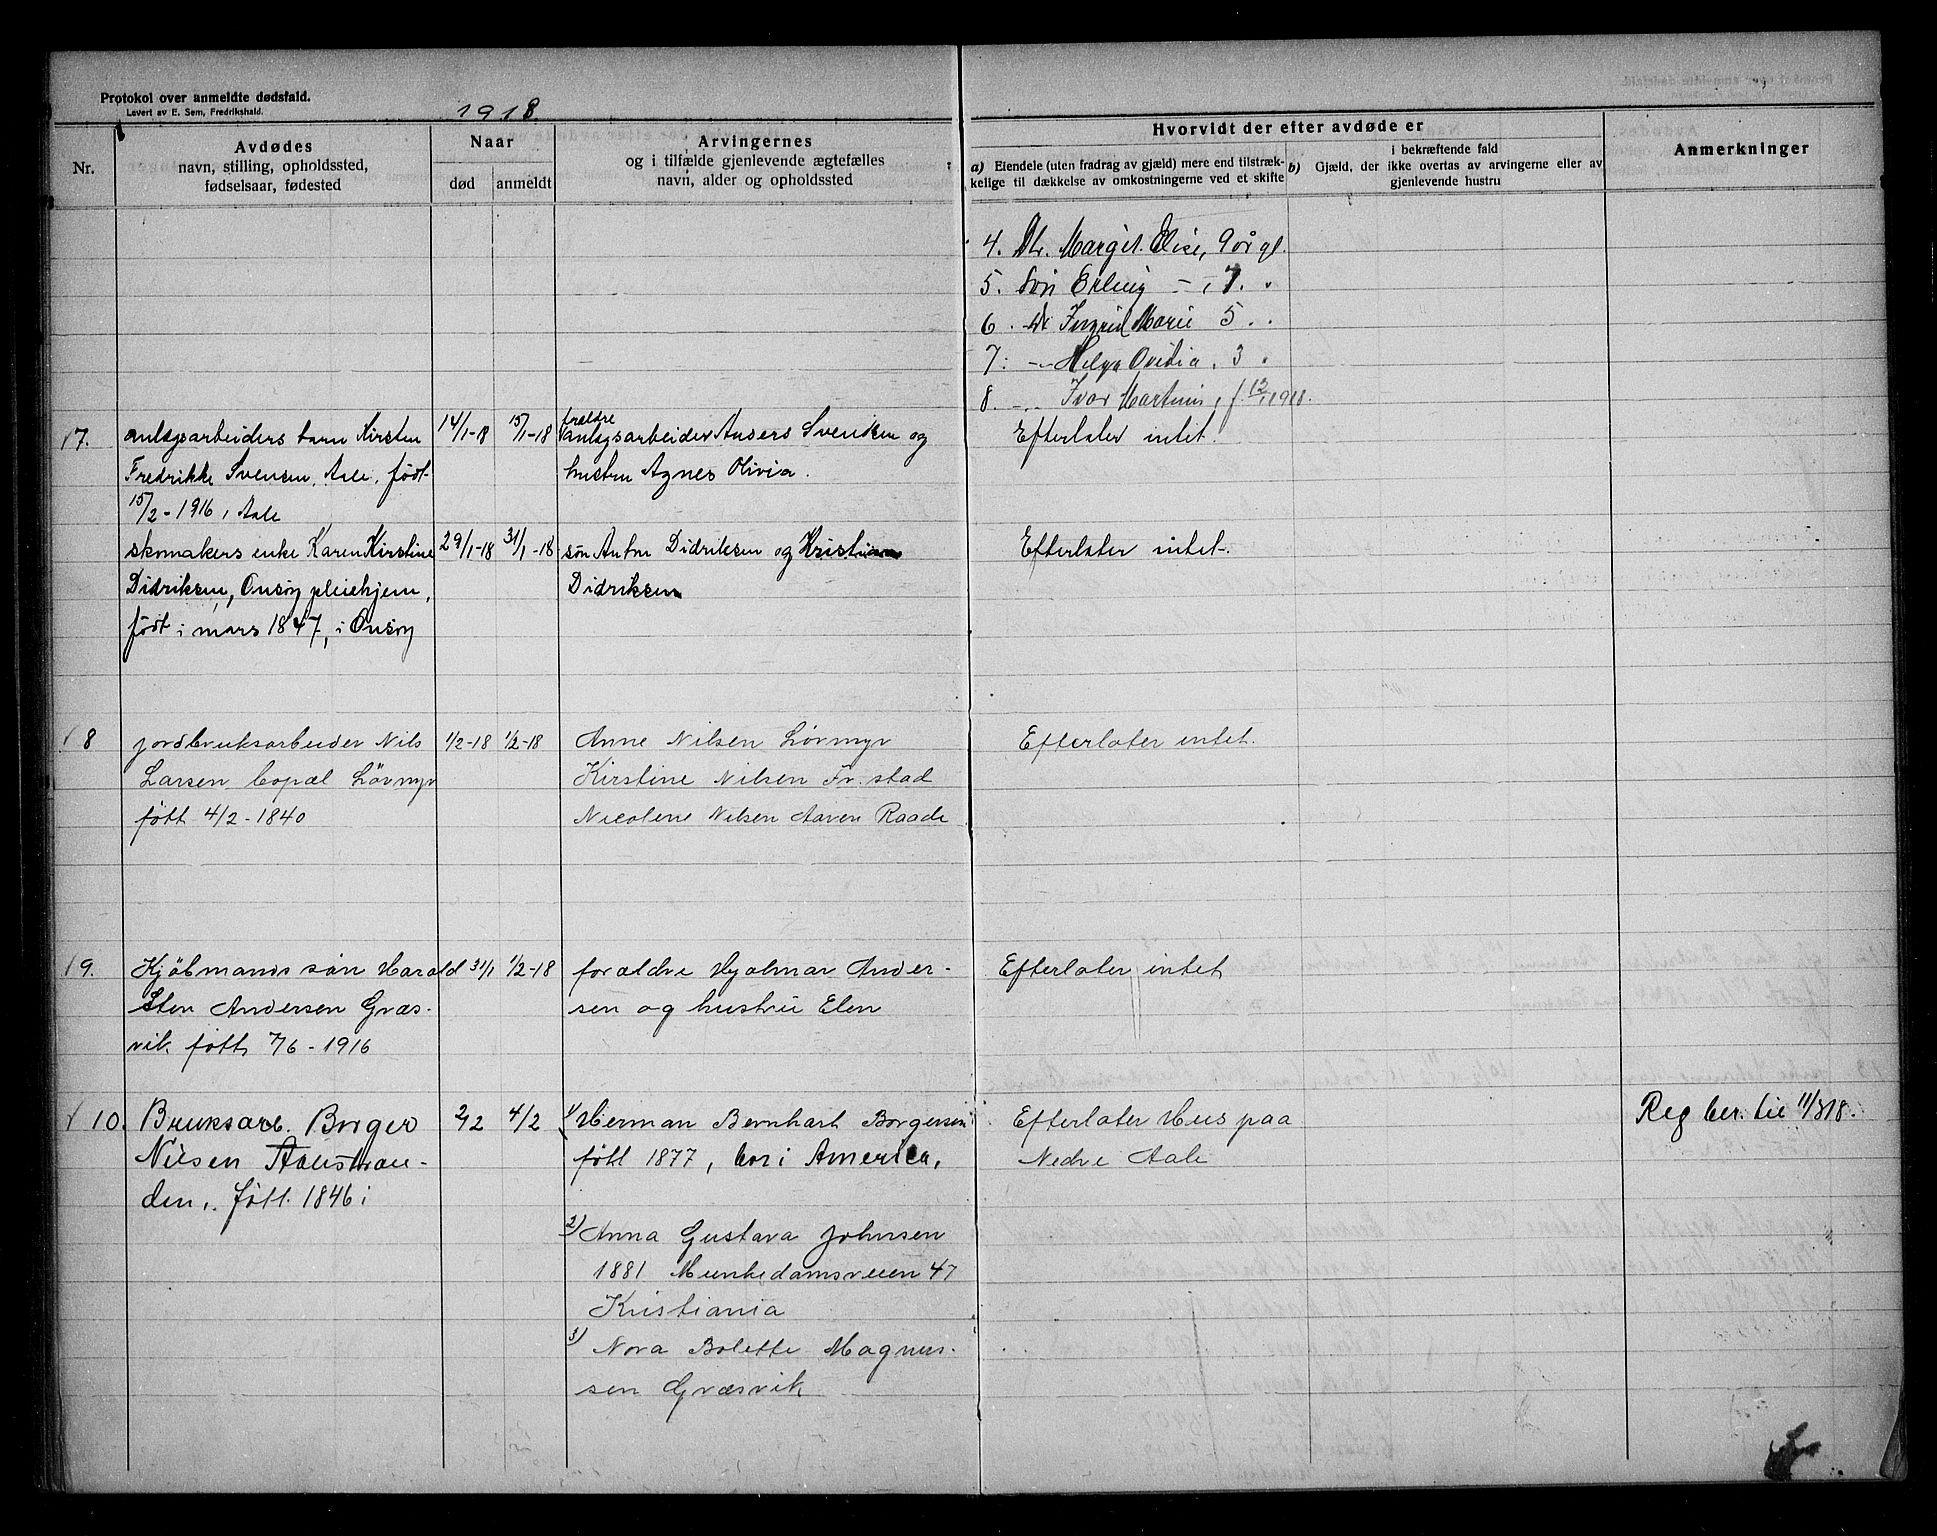 Protokol over anmeldte dødsfald.
Levert av E. Sem, Fredrikshald.
1918.
Nr.
Avdødes
navn, stilling, opholdssted,
fødselsaar, fødested
Naar
død
anmeldt
Arvingernes
og i tilfælde gjenlevende ægtefælles
navn, alder og opholdssted
Hvorvidt der efter avdøde er
a) Eiendele (uten fradrag av gjæld) mere end tilstræk-
kelige til dækkelse av omkostningerne ved et skifte
i bekræftende fald
b) Gjæld, der ikke overtas av arvingerne eller av
gjenlevende hustru
Anmerkninger
4. Dtr. Margit Elise, 9 år gl.
5. Søn Erling - , 7. "
6. Dtr Ingrid Marie 5 . .
7. -"- Helga Ovidia , 3 "
8. -"- Ivar Martinus, f. 12/1 1918.
17.
anlægsarbeiders barn Kirsten
Fredrikke Svensen, Aale, født
15/2-1916, Aale
14/1-18
15/1-18
forældre
anlægsarbeider Anders Svensen og
hustru Agnes Olivia.
Efterlater intet.
skomakers enke Karen Kirstine
Didriksen, Onsøy pleiehjem,
født i mars 1847, i Onsøy
29/1-18
31/1-18
søn Anton Didriksen og Kristian
Didriksen
Efterlater intet.
8
jordbruksarbeider Nils
Larsen Løvmyr
født 4/2-1840
1/2-18
1/2-18
Anne Nilsen Løvmyr
Kirstine Nilsen Fr.stad
Nicoline Nilsen Aaven Raade
Efterlater intet.
19.
Kjøbmands søn Harald
Sten Andersen Græs-
vik født 7/6-1916
31/1
1/2-18
forældre Hjalmar Ander-
sen og hustru Elen
Efterlater intet
10.
Bruksarb. Borger
Nilsen Aalestran-
den, født 1846 i
2/2
4/2
1) Herman Bernhart Borgersen
født 1877, bor i America,
2) Anna Gustava Johnsen
1881 Munkedamsveien 47
Kristiania
3) Nora Bolette Magnus-
sen Græsvik
Efterlater Hus paa
Nedre Aale
Reg ber. til 11/3 18.